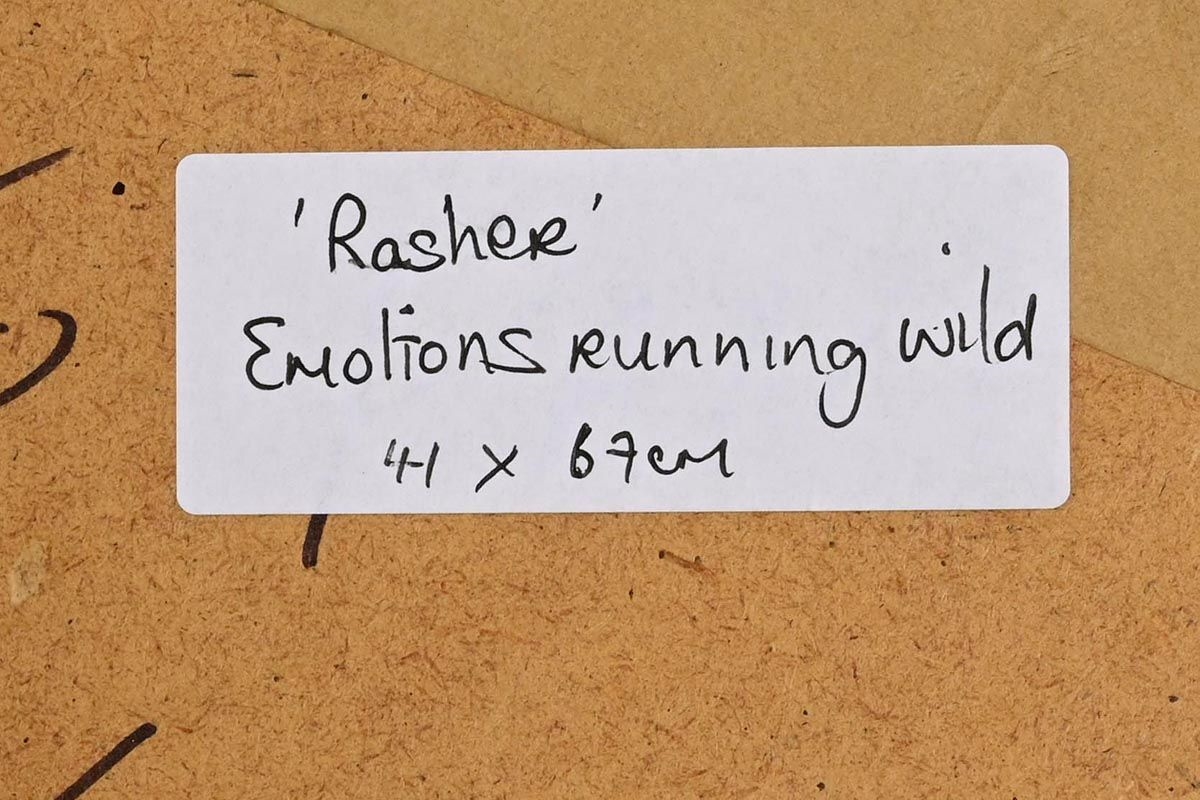 'Rasher'
Emotions running wild
41 x 67cm